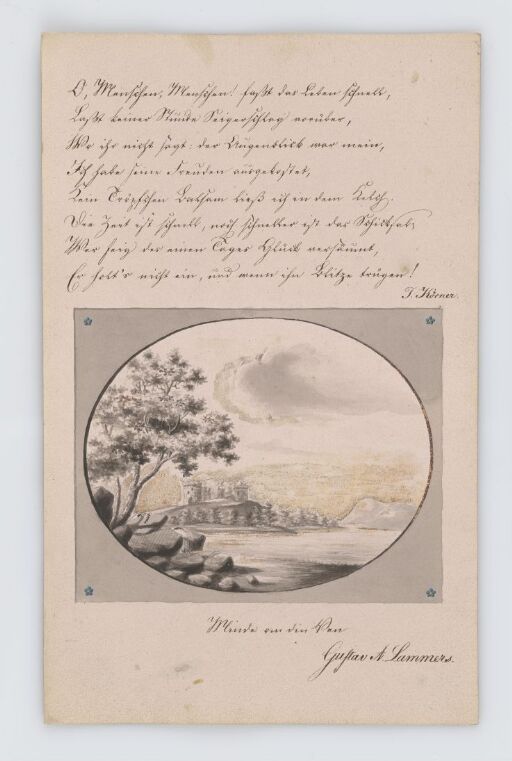 O, Menschen, Menschen! faßt das Leben schnell,
Laßt keiner Stunde Seigerschlag vorüber,
Wo ihr nicht sagt: der Augenblick war mein,
Ich habe seine Freuden ausgekostet,
Kein Tröpfchen Balsam ließ ich in dem Kelch.
Die Zeit ist schnell, noch schneller ist das Schicksal,
Wer feig des einen Tages Glück versäumt,
Er holt's nicht ein, und wenn ihn Blitze trügen!
T. Körner.
Minde an den
Gustav A. Lammers.